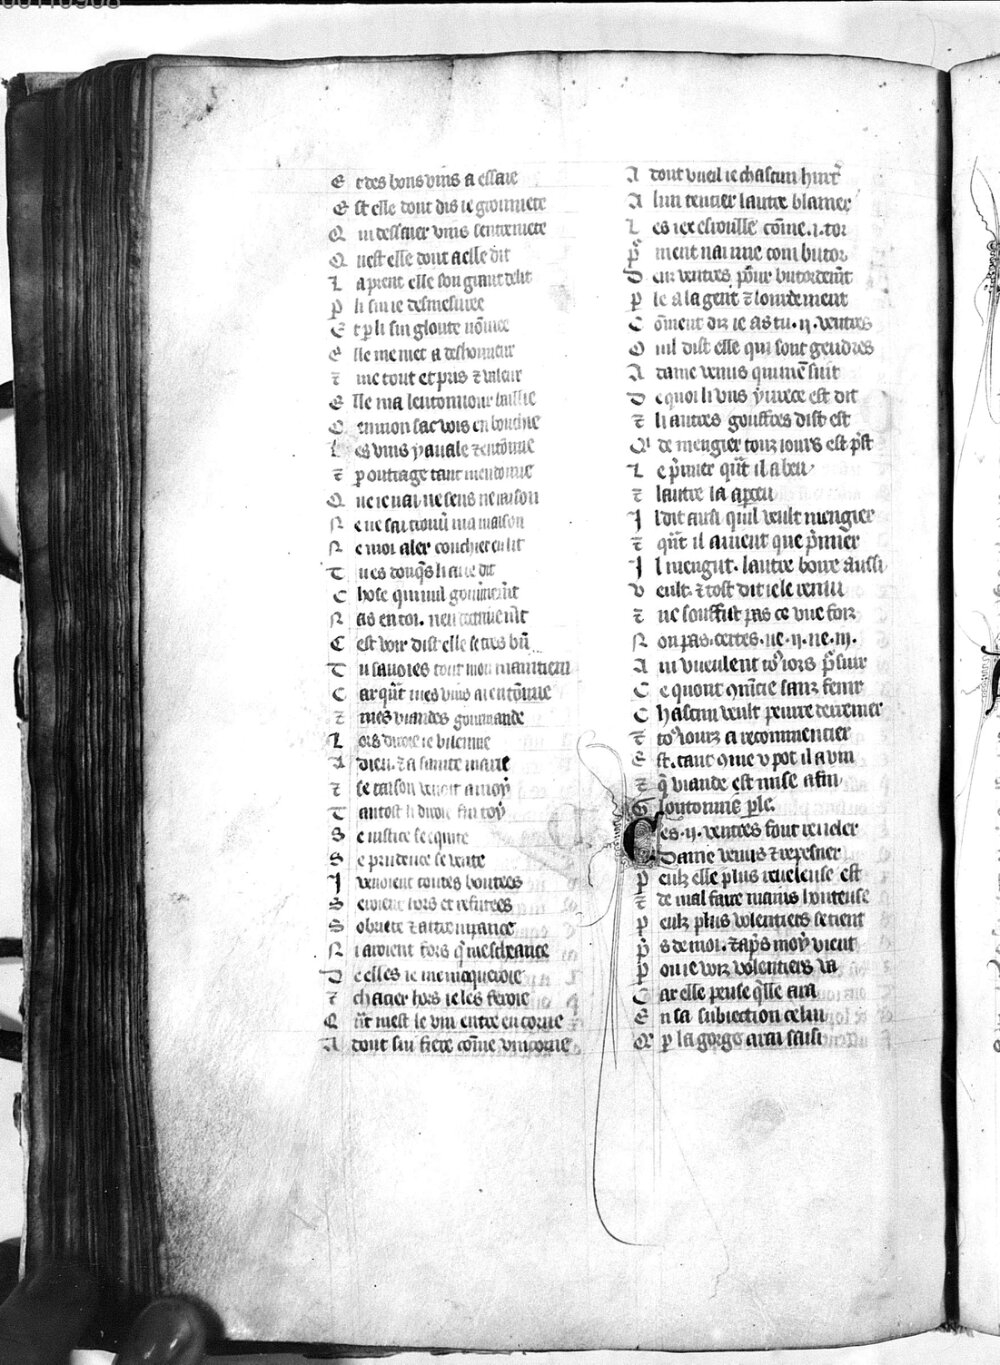 E t des bons vins a essaie
E st elle dont dis ie gloutniere
Q ui dessaier vins sentremete
Q uest elle dont a elle dit
L a prent elle son grant delit
P li sui ie desmesuree
E t p li sui gloute nōmee
E lle me met a deshonneur
⁊ me tout et pris ⁊ valeur
E lle ma lentonnour baillie
en mon sac vois en bouchie
L es vins y auale ⁊ entōnne
⁊ p outrage tant men donne
Q ue ie nai ne sens ne raison
N e ne sai trouū ma maison
N e moi aler couchier en lit
T u es donqs li ai ie dit
C hose qui mil
N as en toi
C est voir dist elle se tres bn̄
T u sauoies tout mon maintien
C ar qn̄t mes vins ai entōnne
⁊ mes viandes gourmande
L ors diroie ie vilennie
A dieu ⁊ a sainte marie
⁊ se raison venoit a moy
T antost li diroie fui toy
S e iustice se equite
S e prudence se verite
I venoient toutes boutees
S eroient hors et refusees
S obriete ⁊ attrempance
N i aroient fors q̄ mescheance
D e elles ie me moqueroie
⁊ chacier hors ie les feroie
Q n̄t mest le vin entre en corne
A dont sui fiere cōme vnicorne
A tout vueil ie chascun hurt̄
A lun tencier lautre blamer
L es iex esrouille cōme .i. tor
p̄ ment nai nne com butor
D eux ventres pour butordent
P le a la gent ⁊ lourdement
C ōment diz ie as tu .ii. ventres
O uil dist elle qui sont gendres
A dame venus qui mē suit
D e quoi li vns yurece est dit
⁊ li autres gouffres dist est
Q̄ de mengier touz iours est p̄st
L e p̄mier qn̄t il a beu
⁊ lautre la apceu
I l dit ausi quil veult mengier
⁊ qn̄t il auient que p̄mier
I l mengut. lautre boire aussi
V eult. ⁊ tost dit ie le reni
⁊ ne souffist pas ce vne foiz
N on pas. certes. ne .ii. ne .iii.
A in vueulent toꝰ iors p̄siuir
C e quont 9mēcie sanz fenir
C hascun veult penire derrenier
⁊ toꝰ iours a recommencier
E st. tant 9me u pot il a vin
⁊ q̄ viande est mise a fin
Gloutonnie ple
C es .ii. ventres font reueler
Dame venus ⁊ respsner
P eulz elle plus reueleuse est
⁊ de mal faire mains honteuse
P eulz plus volentiers se tient
P s de moi. ⁊ aps moy vient
P ou ie vois volentiers va
C ar elle pense q̄lle ara
E n sa subiection celui
Q̄ p la gorge arai saisi